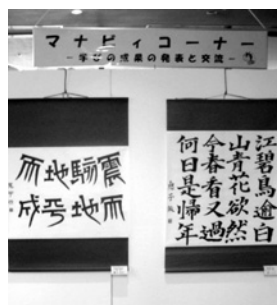 マナビィコーナー
－学びの成果の発表と交流－
江碧鳥逾白
山青花欲然
今春看又過
何日是帰年
震天
地
地平
天成